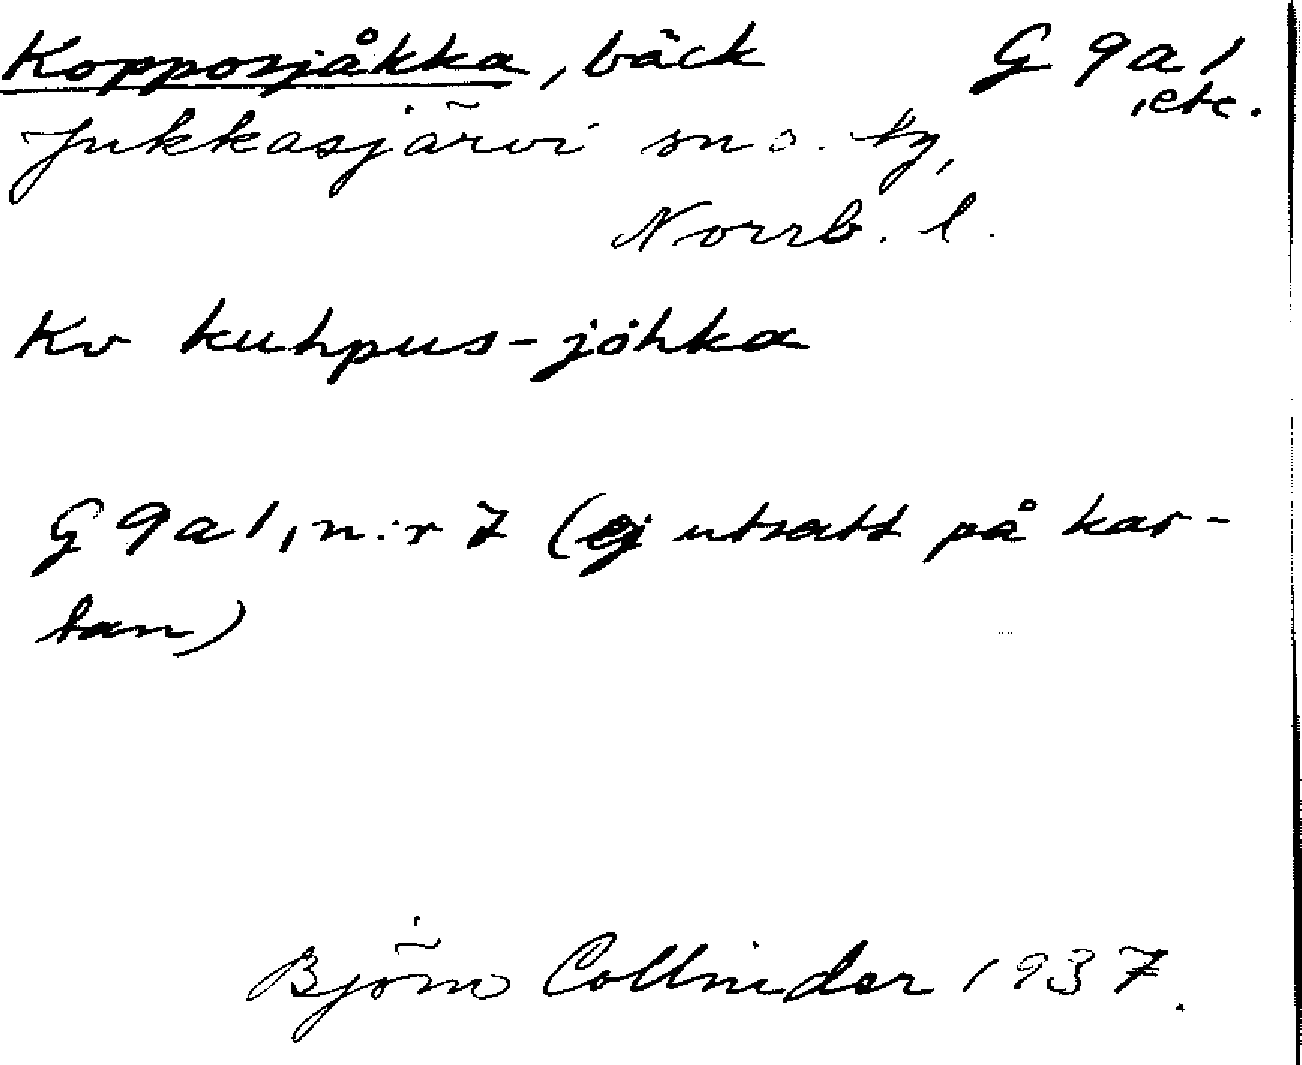 Kopposjåkka, bäck G 9a1
, etc.
Jukkasjärvi sn o. tg,
Norrb. l.
Kv kuhpus-jòhka
G 9a1, n:r 7 (ej utsatt på kar-
tan)
Björn Collinder 1937.